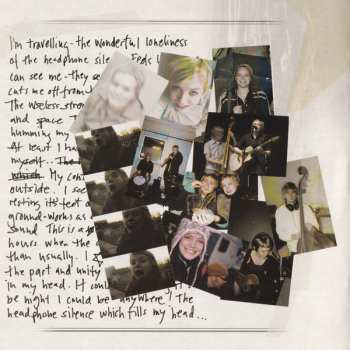 I'm travelling - the wonderful loneliness
of the headphone sile Feels
can see me - they se
cuts me off from
The useless stron
and space t
humming my
At least I ha
myself.. The
which My
outside. I see
resting its feet
ground-works as
sound This is a
hours when the
than usually. I
the part and unity
in my head. It coul
be night I could be anywhere! The
headphone silence which fills my head...